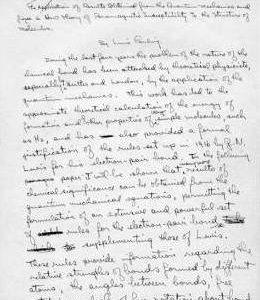 The Application of Results Obtained from the Quantum Mechanics and
from a New Theory of Paramagnetic Susceptibility to the Structure of
Molecules
By Linus Pauling
During the last four years the problem of the nature of the
chemical bond has been attacked by theoretical physicists,
especially Heitler and London, by the application of the
quantum mechanics. This work has led to the
approximate theoretical calculation of the energy of
formation and other properties of simple molecules, such
as H2, and has also provided a formal
justification of the rules set up in 1916 by G. N.
Lewis for his electron-pair bond. In the following
paper it will be shown that results of
chemical significance can be obtained from the
quantum mechanical equations, permitting the
formulation of an extensive and powerful set
of rules for the electron-pair bond
supplementing those of Lewis.
These rules provide information regarding the
relative strengths of bonds formed by different
atoms, the angles between bonds, free